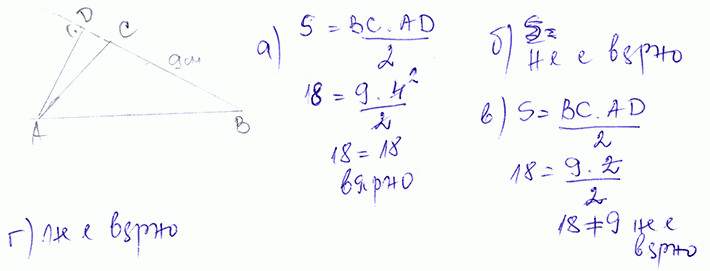 D
C
9 см
A
B
а) S = BC . AD / 2
18 = 9 . 4² / 2
18 = 18
вярно
б) S=
не е вярно
в) S = BC . AD / 2
18 = 9 . 2 / 2
18 ≠ 9 не е
вярно
г) не е вярно